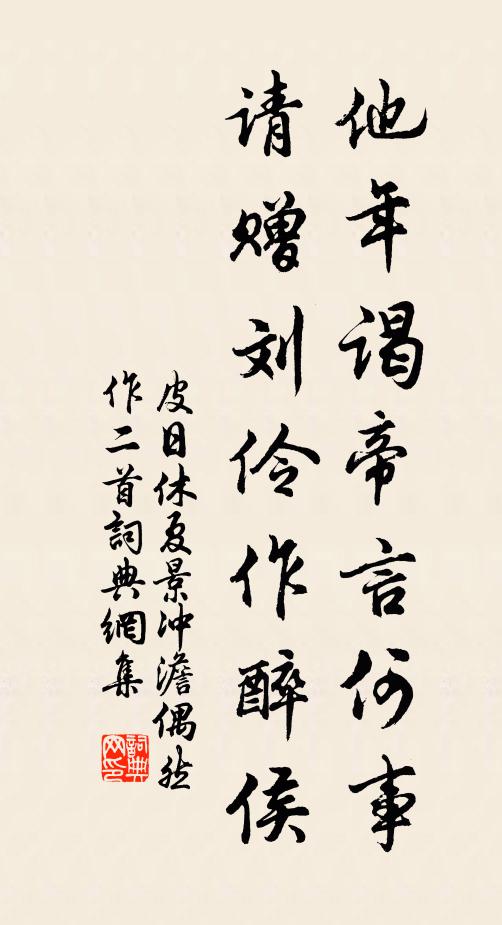 他年谒帝言何事
请赠刘伶作醉侯
皮日休夏景冲澹偶然
作二首詞典網集
詞典
网印